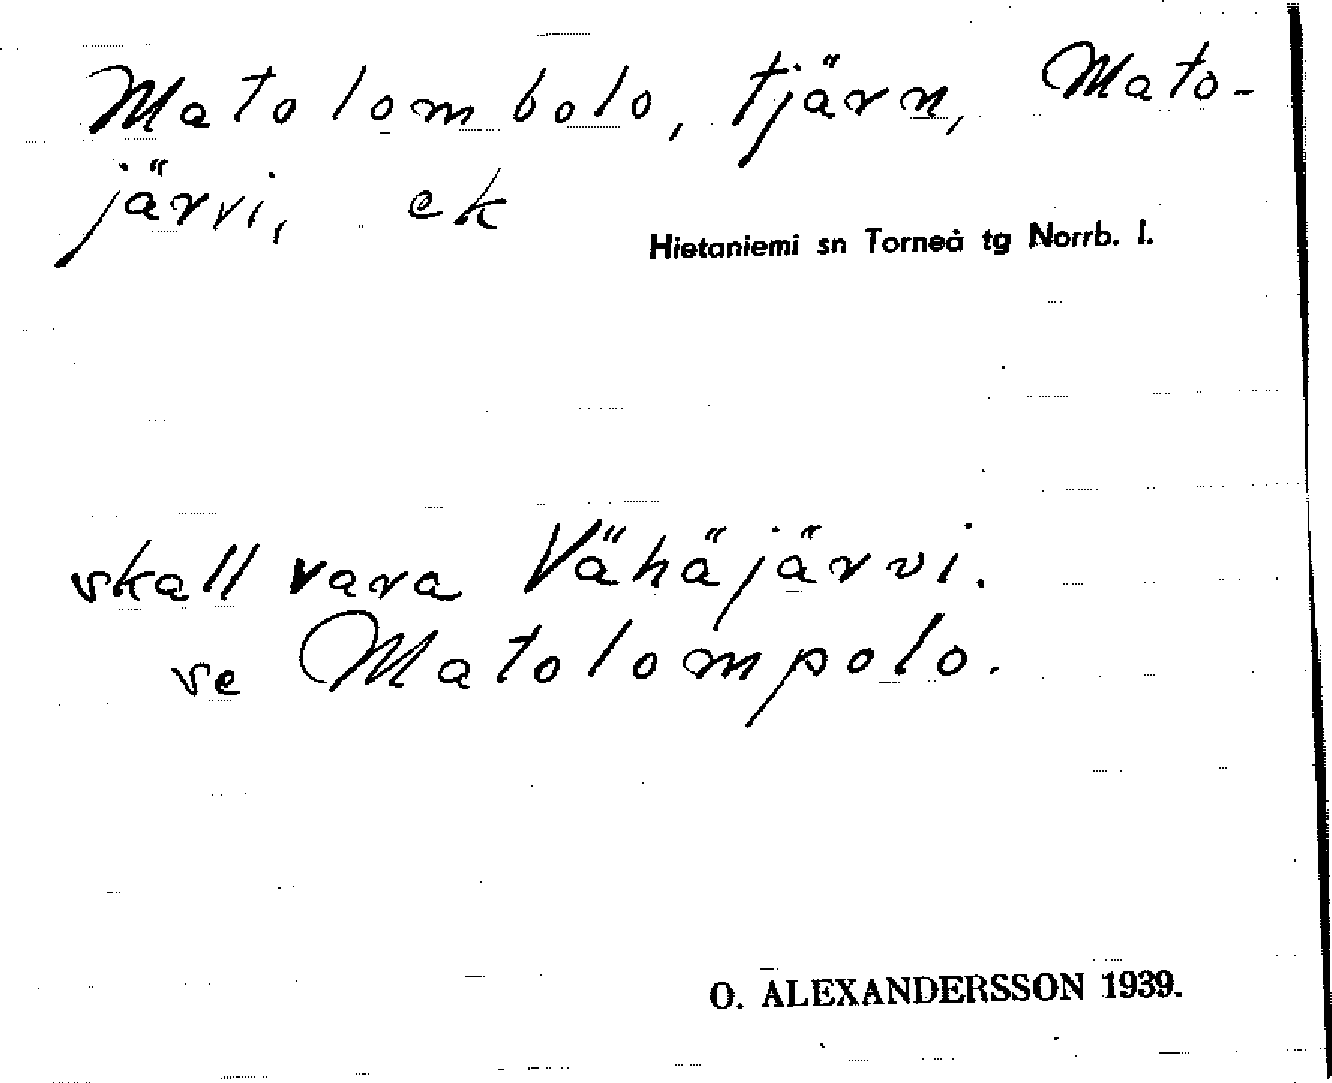 Matolombolo, tjärn, Mato-
järvi, ek
Hietaniemi sn Torneå tg Norrb. l.
skall vara Vähäjärvi.
se Matolompolo.
O. ALEXANDERSSON 1939.